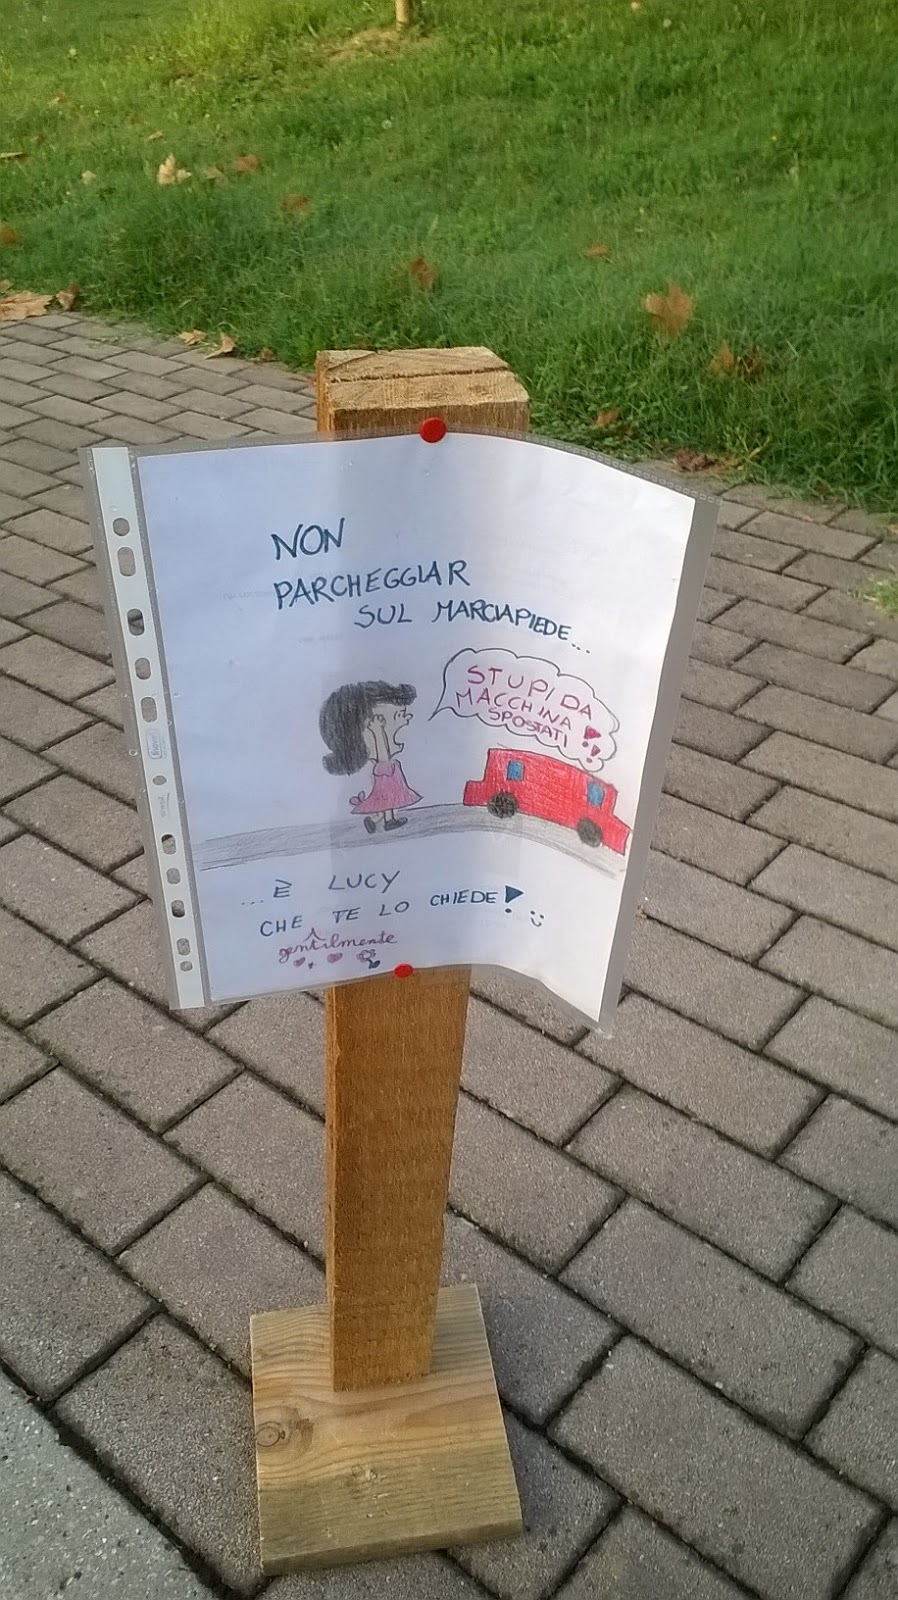 NON
PARCHEGGIAR
SUL MARCIAPIEDE...
STUPIDA
MACCHINA
SPOSTATI !!
...È LUCY
CHE TE LO CHIEDE! :)
gentilmente